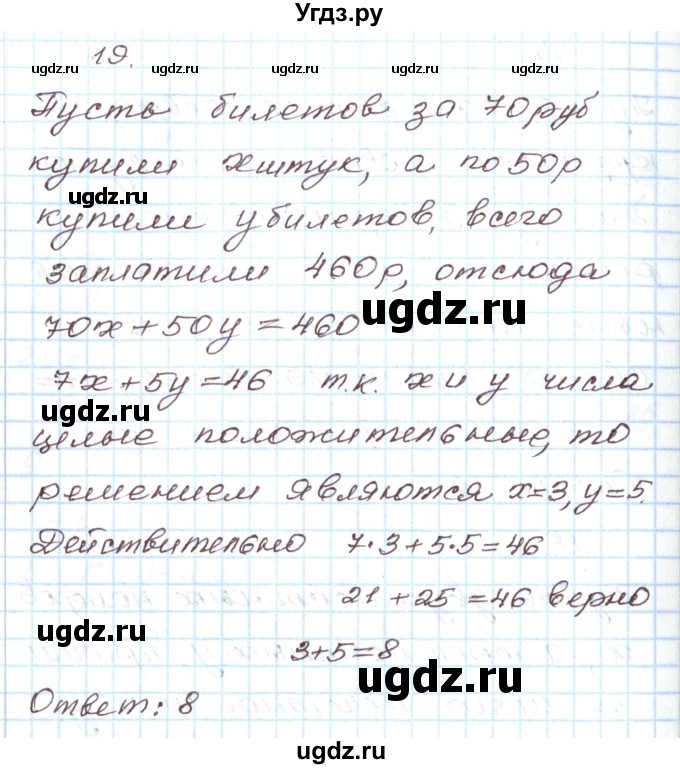 Угдз.ру
19.
ugdz.ru ugdz.ru ugdz.ru ugdz.ru ugdz.ru
Пусть билетов за 70 руб
купили х штук, а по 50р
ugdz.ru
купили у билетов, всего
заплатили 460р, отсюда
70х + 50у = 460
ugdz.ru
7х + 5у = 46 т.к. х и у числа
ugdz.ru
целые положительные, то
решением являются х=3, у=5.
Действительно 7·3+5·5=46
21+25=46 верно
ugdz.ru
3+5=8
ugdz.ru
Ответ: 8
ugdz.ru